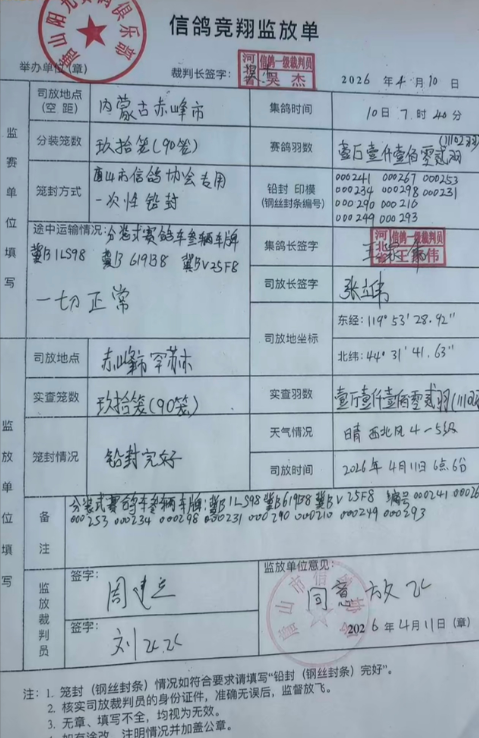 信鸽竞翔监放单
唐山阳北赛鸽俱乐部
举办单位(章)
裁判长签字:
信鸽一级裁判员
吴杰
2026年4月10日
监赛单位填写
司放地点(空距)
内蒙古赤峰市
集鸽时间
10日7时40分
分装笼数
玖拾笼(90笼)
赛鸽羽数
壹万壹仟壹佰零贰羽
(11102羽)
笼封方式
唐山市信鸽协会专用
一次性铅封
铅封 印模
(钢丝封条编号)
000241 000267 000253
000234 000298 000231
000290 000210
000249 000293
途中运输情况:分装式赛鸽车叁辆车牌
冀B1LS98 冀B619B8 冀BV25F8
一切正常
集鸽长签字
信鸽一级裁判员
司放长签字
张立伟
司放地坐标
东经:119°53′28.92″
北纬:44°31′41.63″
监放单位填写
司放地点
赤峰市罕苏木
实查笼数
玖拾笼(90笼)
实查羽数
壹万壹仟壹佰零贰羽(11102
笼封情况
铅封完好
天气情况
晴 西北风4-5级
司放时间
2026年4月11日6点6分
备注
分装式赛鸽车叁辆车牌:冀B1LS98 冀B619B8 冀BV25F8 编号000241 00026
000253 000234 000298 000231 000290 000210 000249 000293
监放裁判员
签字:
周建立
签字:
监放单位意见:
同意放飞
2026年4月11日(章)
注:1. 笼封(钢丝封条)情况如符合要求请填写“铅封(钢丝封条)完好”。
2. 核实司放裁判员的身份证件,准确无误后,监督放飞。
3. 无章、填写不全,均视为无效。
4. 如有涂改,注明情况并加盖公章。